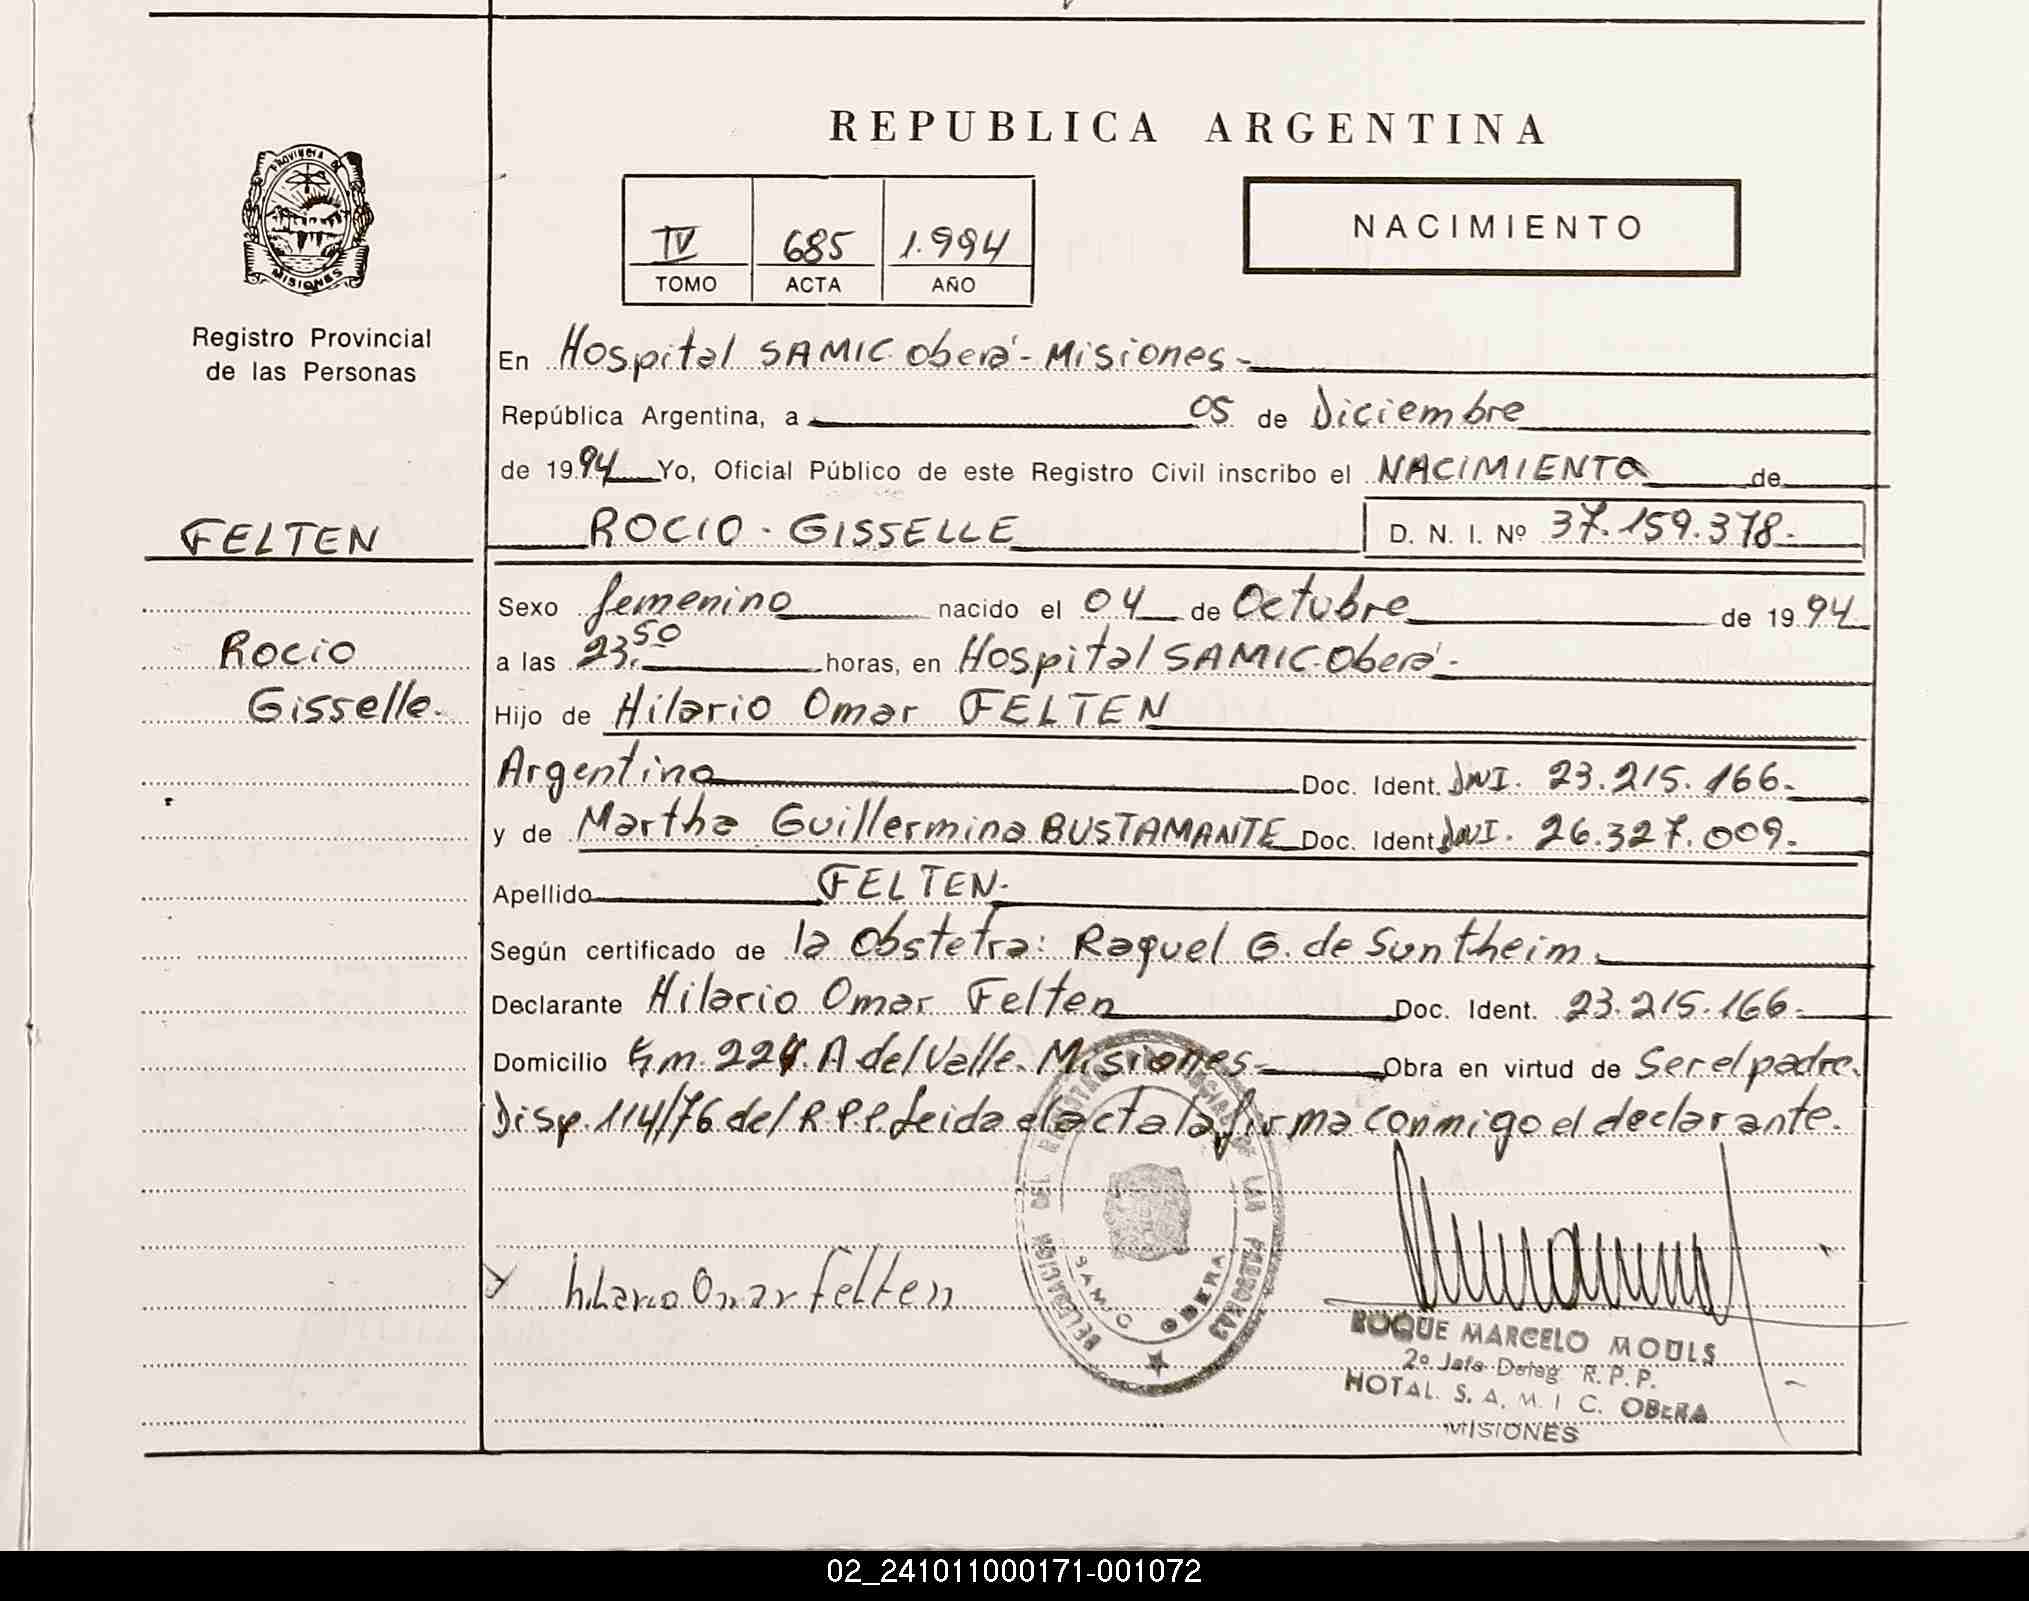 REPUBLICA ARGENTINA
PROVINCIA DE
MISIONES
Registro Provincial
de las Personas
IV 685 1.994
TOMO ACTA AÑO
NACIMIENTO
En Hospital SAMIC Oberá - Misiones -
República Argentina, a 05 de Diciembre
de 1994 Yo, Oficial Público de este Registro Civil inscribo el NACIMIENTO de
FELTEN
ROCIO - GISSELLE D. N. I. Nº 37.159.378.-
Sexo femenino nacido el 04 de Octubre de 1994
Rocio
a las 23.50 horas, en Hospital SAMIC-Oberá -
Gisselle.-
Hijo de Hilario Omar FELTEN
Argentino Doc. Ident. DNI. 23.215.166.-
y de Martha Guillermina BUSTAMANTE Doc. Ident DNI. 26.327.009.-
Apellido FELTEN.-
Según certificado de la Obstetra: Raquel G. de Suntheim.
Declarante Hilario Omar Felten Doc. Ident. 23.215.166.-
Domicilio Km. 224. A del Valle. Misiones.- Obra en virtud de Ser el padre.
Disp. 114/76 del R.P.P. Leida el acta la firma conmigo el declarante.
DELEGACION DEL REGISTRO PROVINCIAL DE LAS PERSONAS
SAMIC OBERA
hilario Omar felten
ROQUE MARCELO MOULS
2º Jefe Deleg. R. P. P.
HOTAL. S. A. M. I C. OBERA
MISIONES
02_241011000171-001072